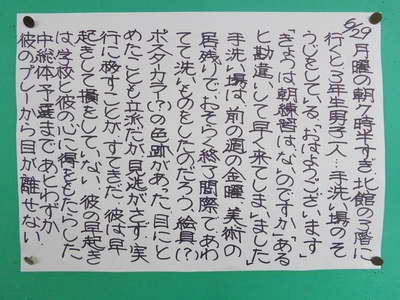 6/29 月曜の朝7時半すぎ、北館の3階に
行くと3年生男子1人…手洗い場のそ
うじをしている。「おはようございます」
「きょうは朝練習はないのですか」「ある
と勘違いして早く来てしまいました」
手洗い場は、前の週の金曜、美術の
居残りで、おそらく終了間際であわ
てて洗いものをしたのだろう、絵具(?)
ポスタカラー(?)の色跡があった。目にと
めたことも立派だが、見逃がさず、実
行に移すことが、すてきだ。彼は早
起きして損をしていない。彼の早起き
は学校と彼の心に得をもたらした。
中総体予選まであとわずか
彼のプレーから目が離せない。